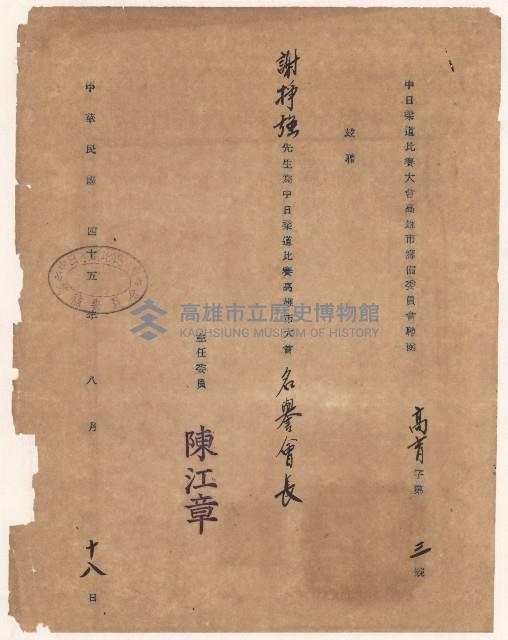 中日柔道比賽大會高雄市籌備委員會聘函
高育字第三號
茲聘
謝掙強先生為中日柔道比賽高雄市大會名譽會長
主任委員
陳江章
中華民國四十五年八月十八日
高雄市立歷史博物館
KAOHSIUNG MUSEUM OF HISTORY